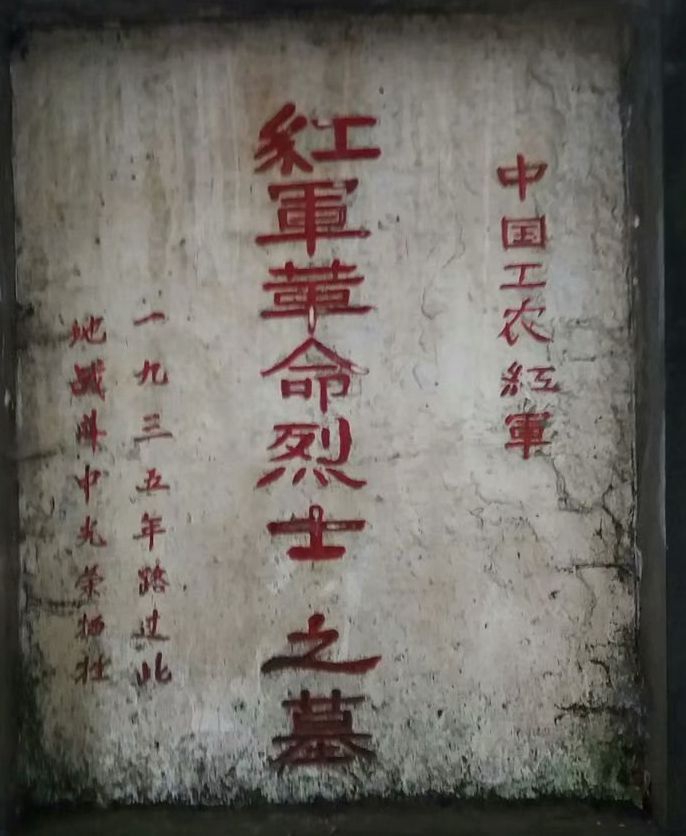 中国工农紅軍
紅軍革命烈士之墓
一九三五年路过此
地战斗中光荣牺牲